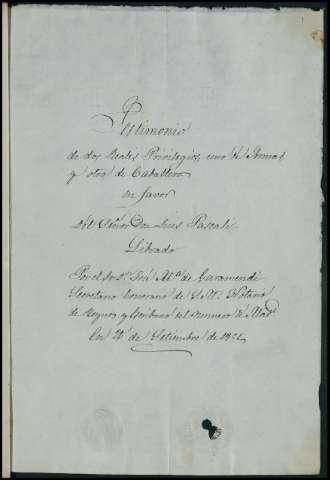 Testimonio
de dos Reales Privilegios, uno de Armas
y otro de Caballero
en favor
del Señor Don Luis Pascali
Librado
Por el Sr. Dn. José Mª de Garamendi
Secretario honorario de S. M. Notario
de Reynos y Escribano del Numero de Madd
En 21 de Setiembre de